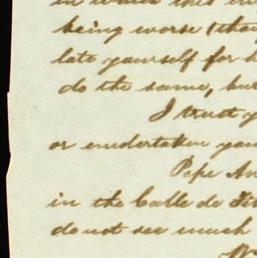 being worse (than
late yourself for h
do the same, but
I trust y
or undertaken you
Pepe An
in the Calle de
do not see much